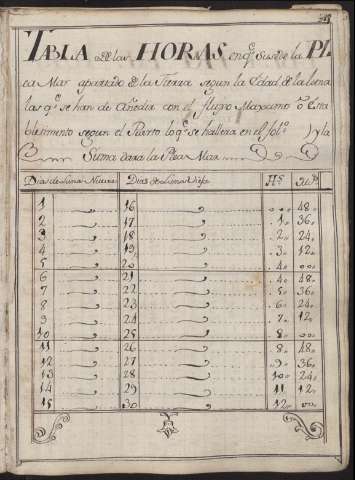 TABLA de las HORAS, en q.e susede la PL
ea Mar apartado de la Tierra segun la Edad de la luna
las q.e se han de Añadir con el flujo Maximo ô Esta
blecimento segun el Puerto lo q.e se hallera en el fol.o y la
Suma dara la Plea Mar
Dias de Luna Nueva Dias de Luna Vieja H.s M.s
1 16 0,, 48,,
2 17 1,, 36,,
3 18 2,, 24,,
4 19 3,, 12,,
5 20 4,, 00,,
6 21 4,, 48,,
7 22 5,, 36,,
8 23 6,, 24,,
9 24 7,, 12,,
10 25 8,, 00,,
11 26 8,, 48,,
12 27 9,, 36,,
13 28 10,, 24,,
14 29 11,, 12,,
15 30 12,, 00,,